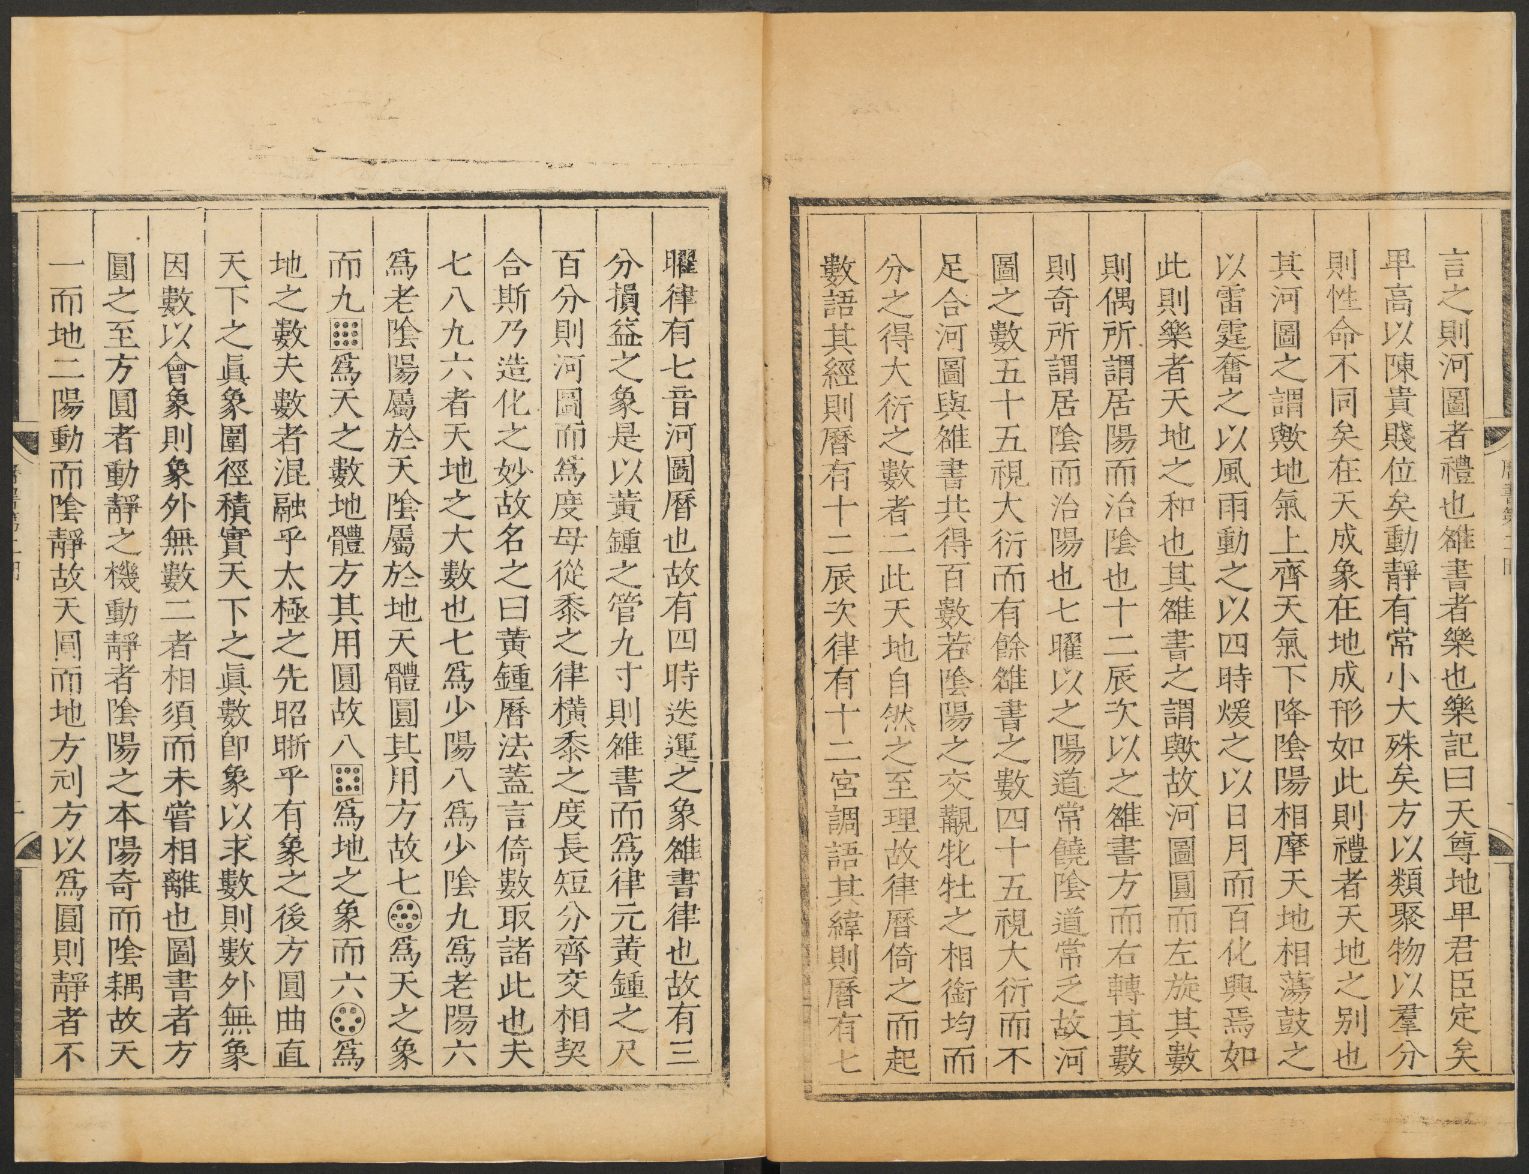 言之則河圖者禮也雒書者樂也樂記曰天尊地卑君臣定矣
卑高以陳貴賤位矣動靜有常小大殊矣方以類聚物以羣分
則性命不同矣在天成象在地成形如此則禮者天地之别也
其河圖之謂歟地氣上齊天氣下降陰陽相摩天地相蕩鼓之
以雷霆奮之以風雨動之以四時煖之以日月而百化興焉如
此則樂者天地之和也其雒書之謂歟故河圖圓而左旋其數
則偶所謂居陽而治陰也十二辰次以之雒書方而右轉其數
則奇所謂居陰而治陽也七曜以之陽道常饒陰道常乏故河
圖之數五十五視大衍而有餘雒書之數四十五視大衍而不
足合河圖與雒書共得百數若陰陽之交觀牝牡之相銜均而
分之得大衍之數者二此天地自然之至理故律曆倚之而起
數語其經則曆有十二辰次律有十二宮調語其緯則曆有七
曜律有七音河圖曆也故有四時迭運之象雒書律也故有三
分損益之象是以黃鍾之管九寸則雒書而爲律元黃鍾之尺
百分則河圖而爲度母從黍之律橫黍之度長短分齊交相契
合斯乃造化之妙故名之曰黃鍾曆法蓋言倚數取諸此也夫
七八九六者天地之大數也七爲少陽八爲少陰九爲老陽六
爲老陰陽屬於天陰屬於地天體圓其用方故七爲天之象
而九爲天之數地體方其用圓故八爲地之象而六爲
地之數夫數者混融乎太極之先昭晰乎有象之後方圓曲直
天下之眞象圍徑積實天下之眞數卽象以求數則數外無象
因數以會象則象外無數二者相須而未嘗相離也圖書者方
圓之至方圓者動靜之機動靜者陰陽之本陽奇而陰耦故天
一而地二陽動而陰靜故天圓而地方刓方以爲圓則靜者不